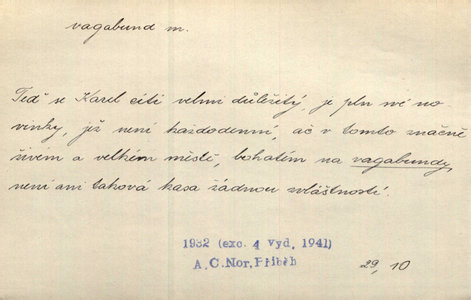 vagabund m.
Teď se Karel cítí velmi důležitý, je pln své no
vinky, jež není každodenní, ač v tomto značně
živém a velkém městě, bohatém na vagabundy,
není ani taková kasa žádnou zvláštností.
1932 (exc. 4 vyd, 1941)
A.C.Nor, Příběh
29, 10